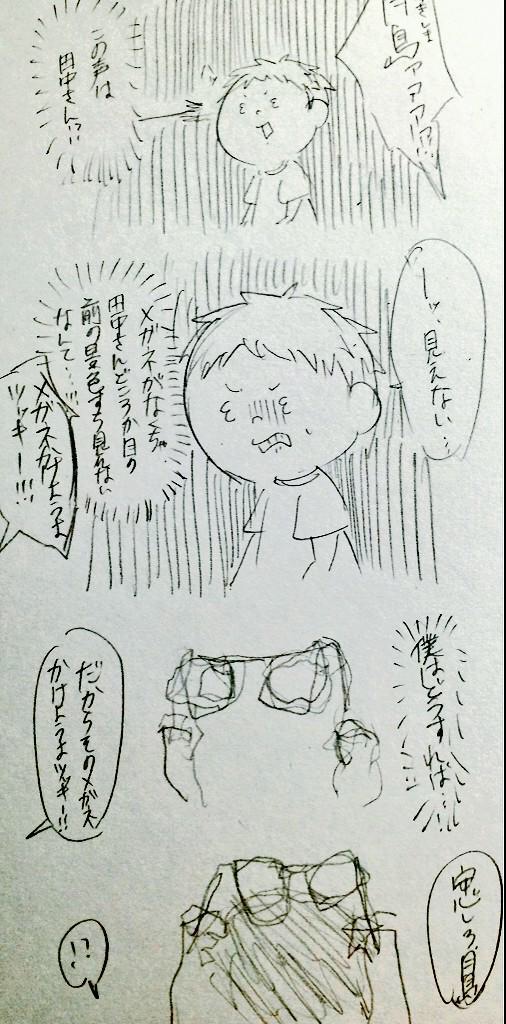 月島ァァァァ!?
つきしま
この声は
田中さんっ!!
ーッ、見えない…
メガネがなくちゃ
田中さんどころか目の
前の景色すら見れない
なんて…!!
メガネかけようよ
ツッキー!!!
僕はどうすれば…!!
だからそのメガネ
かけようよツッキー!!
忍しろ、月島
!?